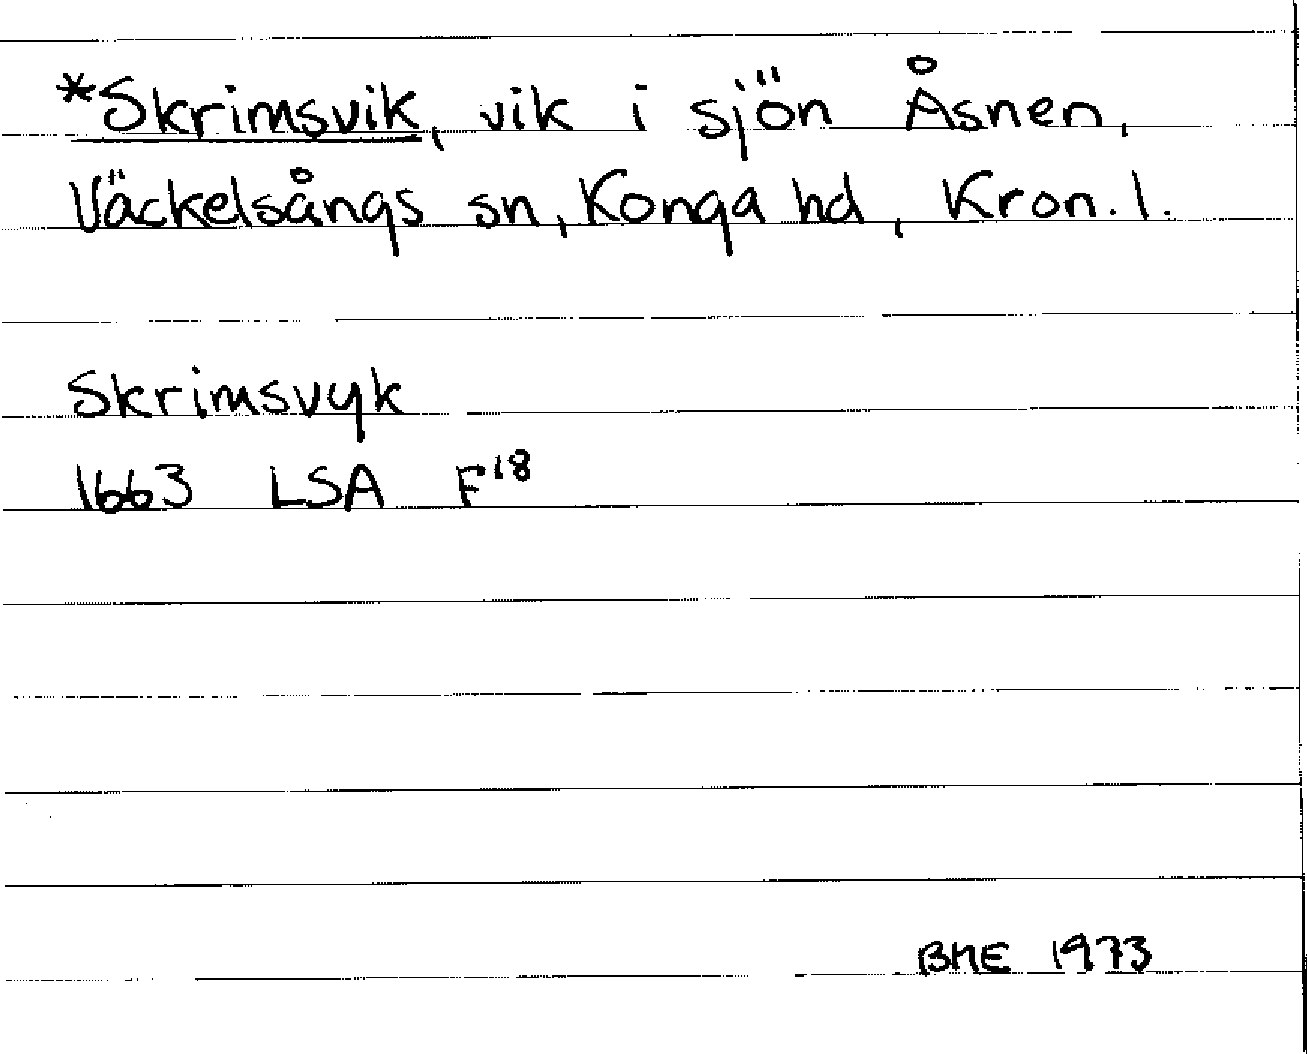 *Skrimsvik, vik i sjön Åsnen,
Väckelsångs sn, Konga hd, Kron. l.
Skrimsvyk
1663 LSA F¹⁸
BME 1973